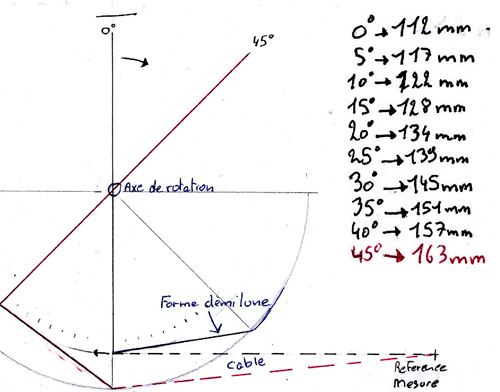 0°
45°
Axe de rotation
Forme demi lune
cable
Reference
Mesure
0° → 112 mm
5° → 117 mm
10° → 122 mm
15° → 128 mm
20° → 134 mm
25° → 139 mm
30° → 145 mm
35° → 151 mm
40° → 157 mm
45° → 163 mm